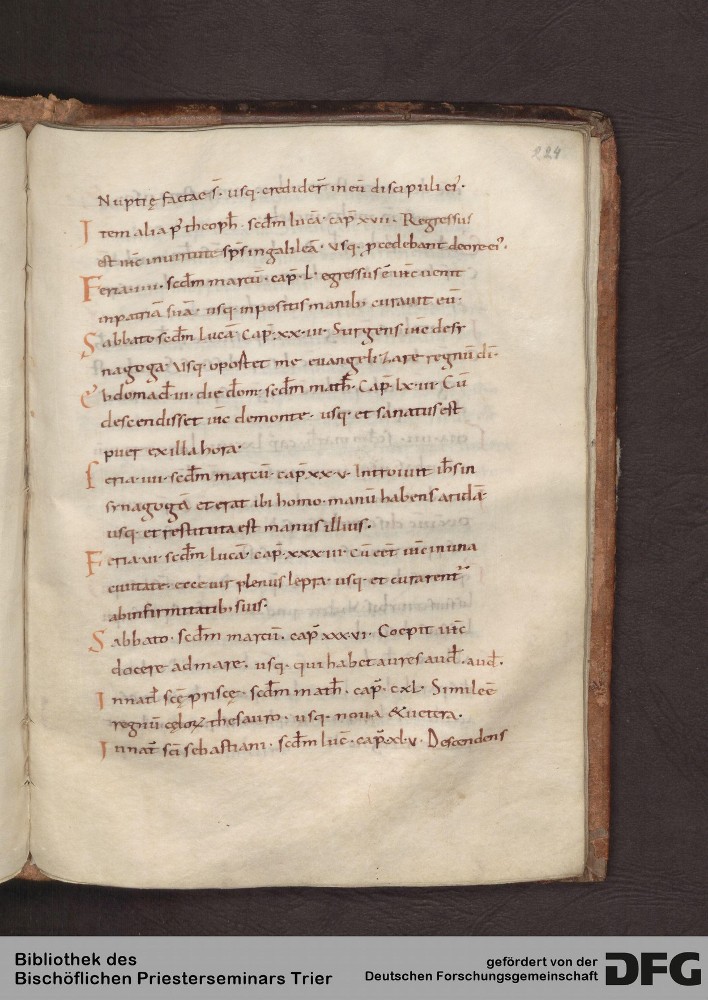 224
Nuptię factae s̄· usq· crediderˉ in eū discipuli ei'·
Item alia p' theoph̄· scd̄m lucā· cap̄ xvii· Regressus
est ih̄c in uirtute sp̄s in galileā· usq· p̄cedebant de ore ei'·
Feria·iiii· scd̄m marcū· cap̄· L· egressus ē ih̄c uenit
in patriā suā· usq· inpositis manib; curauit eū·
Sabbato scd̄m lucā· cap̄·xx·iii· Surgens ih̄c de sy
nagoga· usq· oportet me euangelizare regnū dī·
Ebdomad̄·iii· die dom̄· scd̄m math̄· Cap̄· lx·iii· Cū
descendisset ih̄c de monte· usq· et sanatus est
puer ex illa hora·
Feria·iiii· scd̄m marcū· cap̄·xx·v· Introiuit ih̄s in
synagogā et erat ibi homo· manū habens aridā·
usq· et restituta est manus illius·
Feria·vi· scd̄m lucā· cap̄·xxx·iii· Cū eēt ih̄c in una
ciuitate· ecce uir plenus lepra· usq· et curarent'
ab infirmitatib; suis·
Sabbato· scd̄m marcū· cap̄ xxx·vi· Coepit ih̄c
docere ad mare· usq· qui habet aures aud̄· aud̄·
In natl̄ scę priscę· scd̄m math̄· cap̄· cxl· Simile ē
regnū cęloꝝ thesauro· usq· noua & uetera·
In nat̄ sci sebastiani· scd̄m luc̄· cap̄·xl·v· Descendens
Bibliothek des
Bischöflichen Priesterseminars Trier
gefördert von der
Deutschen Forschungsgemeinschaft
DFG